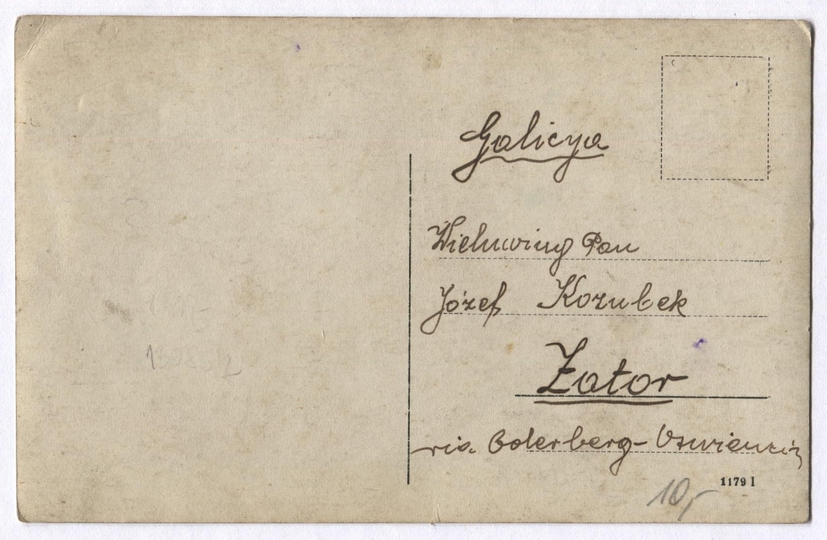 Galicya
Wielmożny Pan
Józef Kozubek
Zator
via Oderberg-Oswiencim
1179 I
10,-